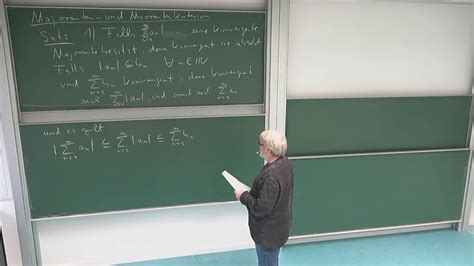 Majoranten- und Minorantenkriterium
Satz 1) Falls ∑_{n=1}^∞ a_n eine konvergente
Majorante besitzt, dann konvergiert sie absolut
Falls |a_n| ≤ b_n ∀ n ∈ ℕ
und ∑_{n=1}^∞ b_n konvergiert, dann konvergiert
auch ∑_{n=1}^∞ |a_n|, und somit auch ∑_{n=1}^∞ a_n
und es gilt
|∑_{n=1}^∞ a_n| ≤ ∑_{n=1}^∞ |a_n| ≤ ∑_{n=1}^∞ b_n